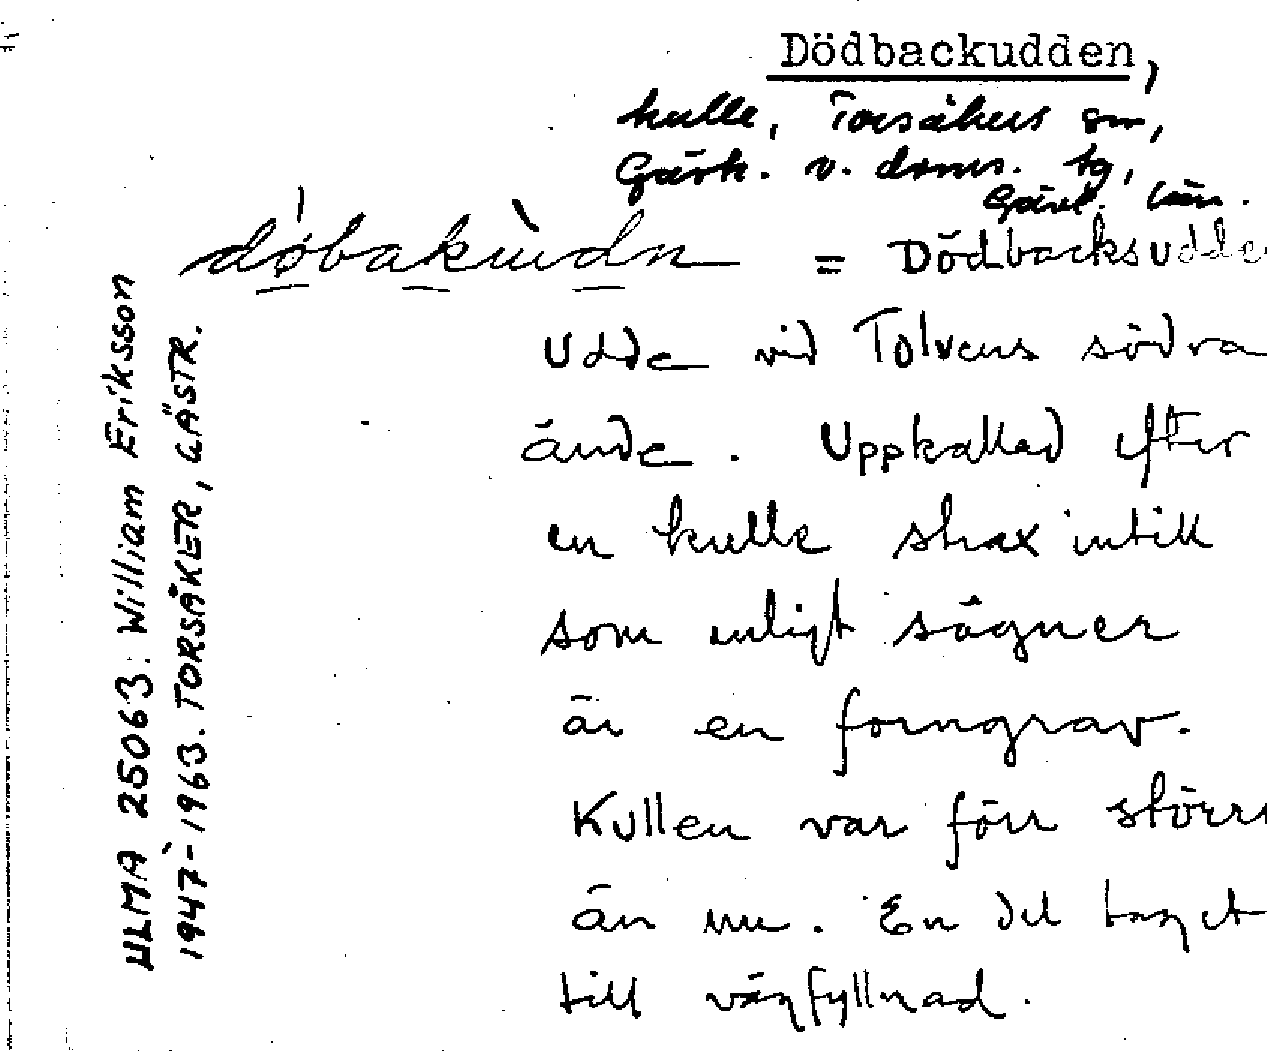 Dödbackudden,
kulle, Torsåkers sn,
Gästr. v. doms. tg,
Gävl. län.
döbakùdn = Dödbacksudde
Udde vid Tolvens södra
ände. Uppkallad efter
en kulle strax intill
som enligt sägner
är en forngrav.
Kullen var förr större
än nu. En del taget
till vägfyllnad.
ULMA 25063: William Eriksson
1947-1963. TORSÅKER, GÄSTR.